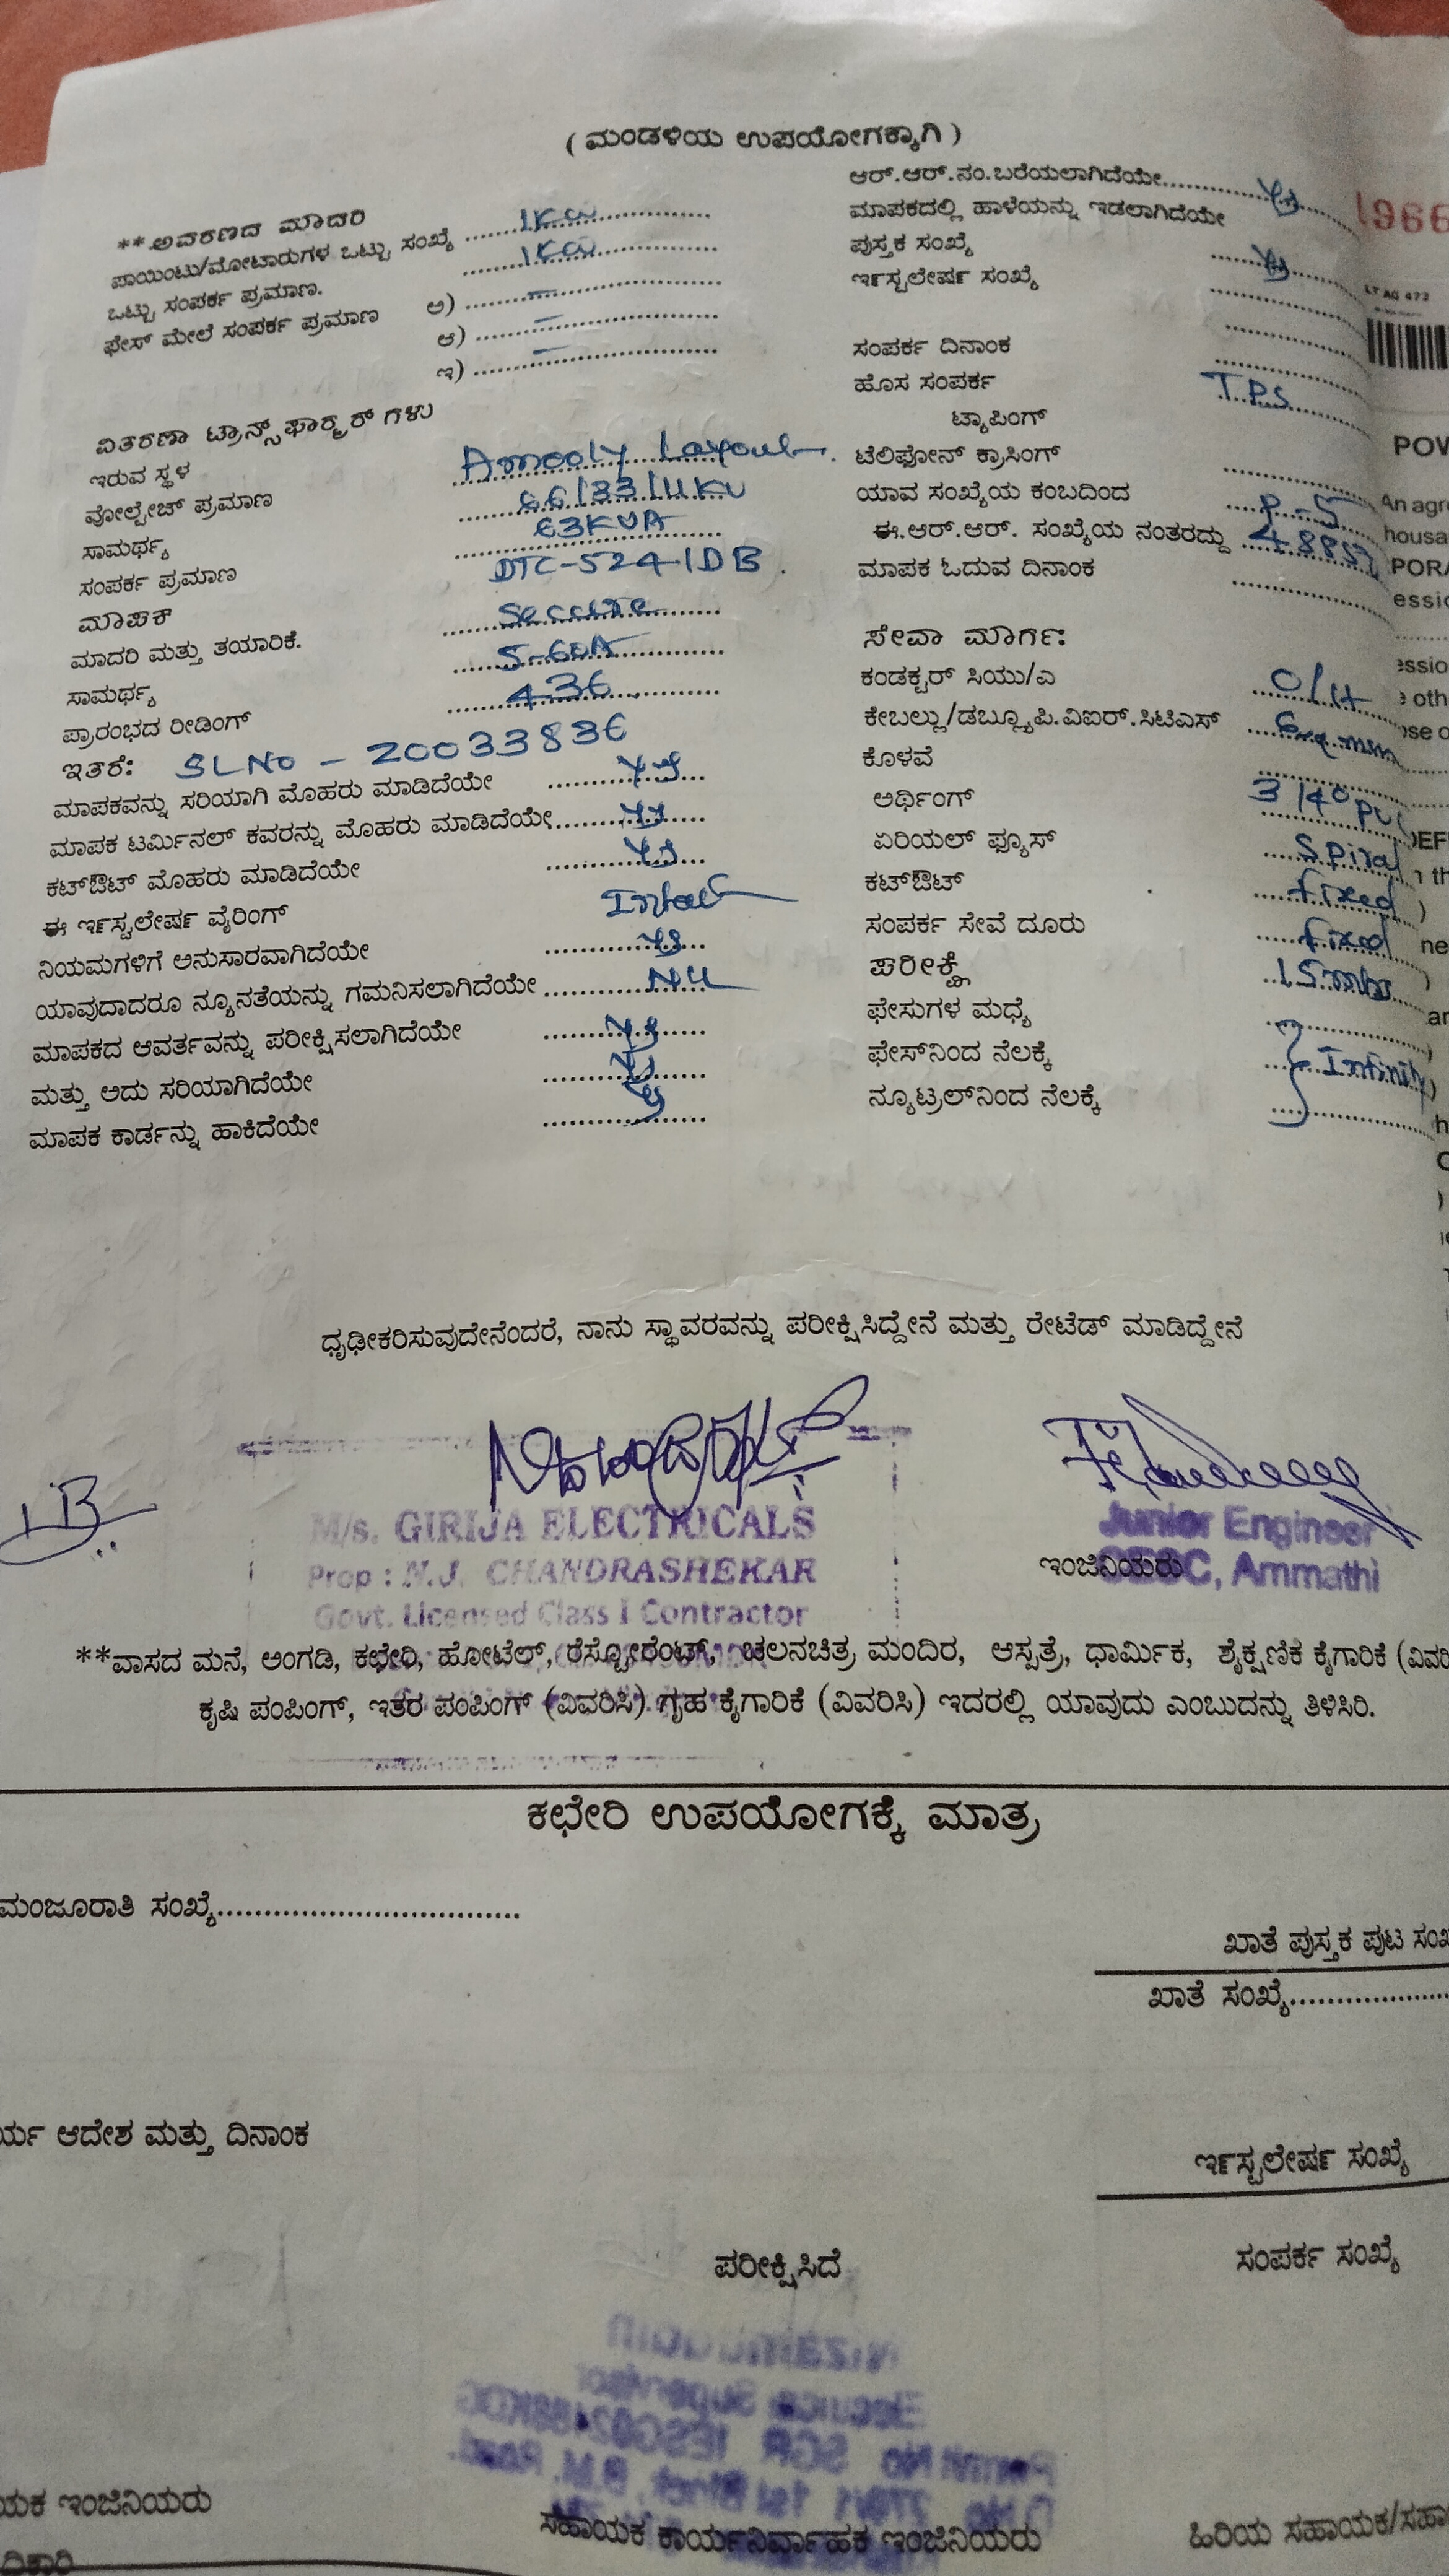 ( ಮಂಡಳಿಯ ಉಪಯೋಗಕ್ಕಾಗಿ )
**ಆವರಣದ ಮಾದರಿ
ಪಾಯಿಂಟು/ಮೋಟಾರುಗಳ ಒಟ್ಟು ಸಂಖ್ಯೆ ........ 1KW
ಒಟ್ಟು ಸಂಪರ್ಕ ಪ್ರಮಾಣ. ........ 1KW
ಫೇಸ್ ಮೇಲೆ ಸಂಪರ್ಕ ಪ್ರಮಾಣ ಅ) ........ —
ಆ) ........ —
ಇ) ........ —
ವಿತರಣಾ ಟ್ರಾನ್ಸ್‌ಫಾರ್ಮರ್ ಗಳು
ಇರುವ ಸ್ಥಳ Ammoly Layout
ವೋಲ್ಟೇಜ್ ಪ್ರಮಾಣ 66/33/11KV
ಸಾಮರ್ಥ್ಯ 63KVA
ಸಂಪರ್ಕ ಪ್ರಮಾಣ DTC-524-1DB.
ಮಾಪಕ
ಮಾದರಿ ಮತ್ತು ತಯಾರಿಕೆ. Secure
ಸಾಮರ್ಥ್ಯ 5-60A
ಪ್ರಾರಂಭದ ರೀಡಿಂಗ್ 436
ಇತರೆ: SLNo - 20033836
ಮಾಪಕವನ್ನು ಸರಿಯಾಗಿ ಮೊಹರು ಮಾಡಿದೆಯೇ ........ Yes
ಮಾಪಕ ಟರ್ಮಿನಲ್ ಕವರನ್ನು ಮೊಹರು ಮಾಡಿದೆಯೇ........ Yes
ಕಟ್‌ಔಟ್ ಮೊಹರು ಮಾಡಿದೆಯೇ ........ Yes
ಈ ಇನ್‌ಸ್ಟಲೇಷನ್ ವೈರಿಂಗ್ Intact
ನಿಯಮಗಳಿಗೆ ಅನುಸಾರವಾಗಿದೆಯೇ ........ Yes
ಯಾವುದಾದರೂ ನ್ಯೂನತೆಯನ್ನು ಗಮನಿಸಲಾಗಿದೆಯೇ ........ Nil
ಮಾಪಕದ ಆವರ್ತವನ್ನು ಪರೀಕ್ಷಿಸಲಾಗಿದೆಯೇ ........ Yes
ಮತ್ತು ಅದು ಸರಿಯಾಗಿದೆಯೇ ........ Yes
ಮಾಪಕ ಕಾರ್ಡನ್ನು ಹಾಕಿದೆಯೇ ........ Yes
ಆರ್.ಆರ್.ನಂ.ಬರೆಯಲಾಗಿದೆಯೇ........ Yes
ಮಾಪಕದಲ್ಲಿ ಹಾಳೆಯನ್ನು ಇಡಲಾಗಿದೆಯೇ
ಪುಸ್ತಕ ಸಂಖ್ಯೆ ........ Yes
ಇನ್‌ಸ್ಟಲೇಷನ್ ಸಂಖ್ಯೆ
ಸಂಪರ್ಕ ದಿನಾಂಕ
ಹೊಸ ಸಂಪರ್ಕ T.P.S
ಟ್ಯಾಪಿಂಗ್
ಟೆಲಿಫೋನ್ ಕ್ರಾಸಿಂಗ್
ಯಾವ ಸಂಖ್ಯೆಯ ಕಂಬದಿಂದ P-5
ಈ.ಆರ್.ಆರ್. ಸಂಖ್ಯೆಯ ನಂತರದ್ದು
ಮಾಪಕ ಓದುವ ದಿನಾಂಕ
ಸೇವಾ ಮಾರ್ಗ:
ಕಂಡಕ್ಟರ್ ಸಿಯು/ಎ O/H
ಕೇಬಲ್ಲು/ಡಬ್ಲ್ಯೂಪಿ.ವಿಐಆರ್.ಸಿಟಿಎಸ್ 6sq.mm
ಕೊಳವೆ
ಅರ್ಥಿಂಗ್ 3/4" PVC
ಏರಿಯಲ್ ಫ್ಯೂಸ್ Spiral
ಕಟ್‌ಔಟ್ fixed
ಸಂಪರ್ಕ ಸೇವೆ ದೂರು fixed
ಪರೀಕ್ಷೆ 15mtrs
ಫೇಸುಗಳ ಮಧ್ಯೆ
ಫೇಸ್‌ನಿಂದ ನೆಲಕ್ಕೆ } Infinity
ನ್ಯೂಟ್ರಲ್‌ನಿಂದ ನೆಲಕ್ಕೆ
1966
LT AG 472
POW
An agre
housa
PORA
essio
ದೃಢೀಕರಿಸುವುದೇನೆಂದರೆ, ನಾನು ಸ್ಥಾವರವನ್ನು ಪರೀಕ್ಷಿಸಿದ್ದೇನೆ ಮತ್ತು ರೇಟೆಡ್ ಮಾಡಿದ್ದೇನೆ
M/s. GIRIJA ELECTRICALS
Prop : N.J. CHANDRASHEKAR
Govt. Licensed Class I Contractor
Junior Engineer
ಇಂಜಿನಿಯರು
CESC, Ammathi
**ವಾಸದ ಮನೆ, ಅಂಗಡಿ, ಕಛೇರಿ, ಹೋಟೆಲ್, ರೆಸ್ಟೋರೆಂಟ್, ಚಲನಚಿತ್ರ ಮಂದಿರ, ಆಸ್ಪತ್ರೆ, ಧಾರ್ಮಿಕ, ಶೈಕ್ಷಣಿಕ ಕೈಗಾರಿಕೆ (ವಿವರಿ
ಕೃಷಿ ಪಂಪಿಂಗ್, ಇತರ ಪಂಪಿಂಗ್ (ವಿವರಿಸಿ) ಗೃಹ ಕೈಗಾರಿಕೆ (ವಿವರಿಸಿ) ಇದರಲ್ಲಿ ಯಾವುದು ಎಂಬುದನ್ನು ತಿಳಿಸಿರಿ.
ಕಛೇರಿ ಉಪಯೋಗಕ್ಕೆ ಮಾತ್ರ
ಮಂಜೂರಾತಿ ಸಂಖ್ಯೆ................................
ಖಾತೆ ಪುಸ್ತಕ ಪುಟ ಸಂಖ್ಯೆ
ಖಾತೆ ಸಂಖ್ಯೆ....................
ರ್ಯ ಆದೇಶ ಮತ್ತು ದಿನಾಂಕ
ಇನ್‌ಸ್ಟಲೇಷನ್ ಸಂಖ್ಯೆ
ಪರೀಕ್ಷಿಸಿದೆ
ಸಂಪರ್ಕ ಸಂಖ್ಯೆ
ಯಕ ಇಂಜಿನಿಯರು
ಸಹಾಯಕ ಕಾರ್ಯನಿರ್ವಾಹಕ ಇಂಜಿನಿಯರು
ಹಿರಿಯ ಸಹಾಯಕ/ಸಹಾ
ದಿಕಾರಿ